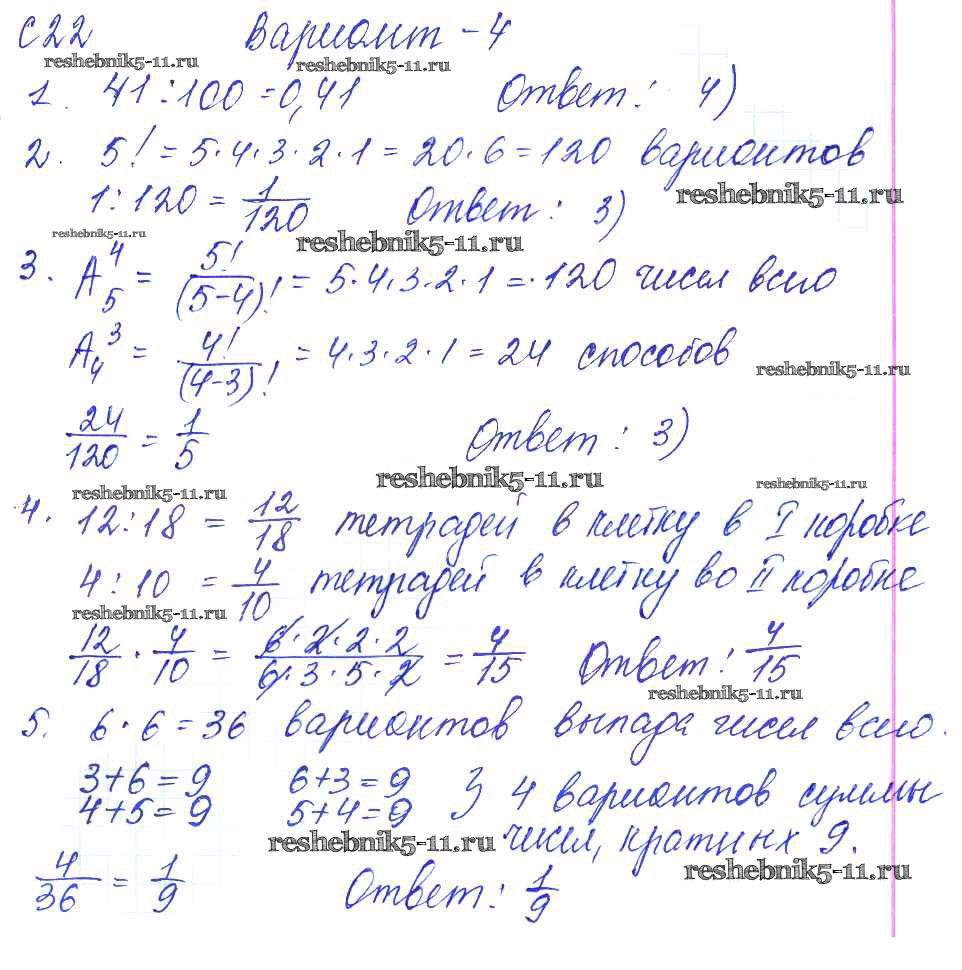 С22 Вариант - 4
reshebnik5-11.ru reshebnik5-11.ru
1. 41 : 100 = 0,41 Ответ: 4)
2. 5! = 5·4·3·2·1 = 20·6 = 120 вариантов
reshebnik5-11.ru
1 : 120 = 1/120 Ответ: 3)
reshebnik5-11.ru reshebnik5-11.ru
3. A₅⁴ = 5!/(5-4)! = 5·4·3·2·1 = 120 чисел всего
A₄³ = 4!/(4-3)! = 4·3·2·1 = 24 способов
reshebnik5-11.ru
24/120 = 1/5 Ответ: 3)
reshebnik5-11.ru
reshebnik5-11.ru reshebnik5-11.ru
4. 12 : 18 = 12/18 тетрадей в клетку в I коробке
4 : 10 = 4/10 тетрадей в клетку во II коробке
reshebnik5-11.ru
12/18 · 4/10 = 6·2·2·2/6·3·5·2 = 4/15 Ответ: 4/15
reshebnik5-11.ru
5. 6·6 = 36 вариантов выпада чисел всего.
3+6=9 6+3=9 } 4 вариантов суммы
4+5=9 5+4=9 чисел, кратных 9.
reshebnik5-11.ru
reshebnik5-11.ru
4/36 = 1/9 Ответ: 1/9